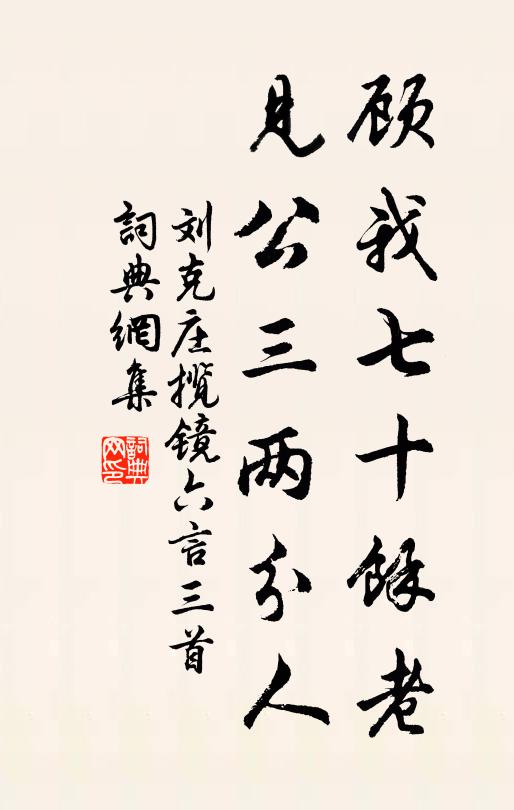 顾我七十馀老
见公三两分人
刘克庄揽镜六言三首
詞典網集
詞典网印